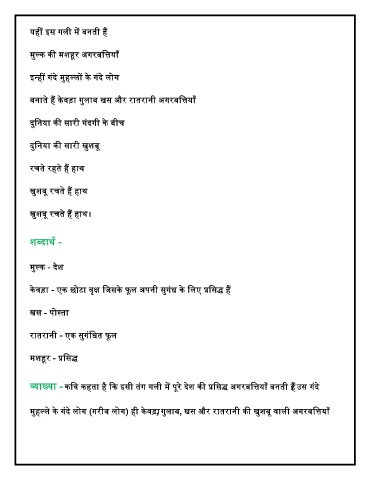 यहीं इस गली में बनती हैं
मुल्क की मशहूर अगरबत्तियाँ
इन्हीं गंदे मुहल्लों के गंदे लोग
बनाते हैं केवड़ा गुलाब खस और रातरानी अगरबत्तियाँ
दुनिया की सारी गंदगी के बीच
दुनिया की सारी खुशबू
रचते रहते हैं हाथ
खुशबू रचते हैं हाथ
खुशबू रचते हैं हाथ।
शब्दार्थ -
मुल्क - देश
केवड़ा - एक छोटा वृक्ष जिसके फूल अपनी सुगंध के लिए प्रसिद्ध हैं
खस - पोस्ता
रातरानी - एक सुगंधित फूल
मशहूर - प्रसिद्ध
व्याख्या - कवि कहता है कि इसी तंग गली में पूरे देश की प्रसिद्ध अगरबत्तियाँ बनती हैं उस गंदे
मुहल्ले के गंदे लोग (गरीब लोग) ही केवड़ा, गुलाब, खस और रातरानी की खुशबू वाली अगरबत्तियाँ